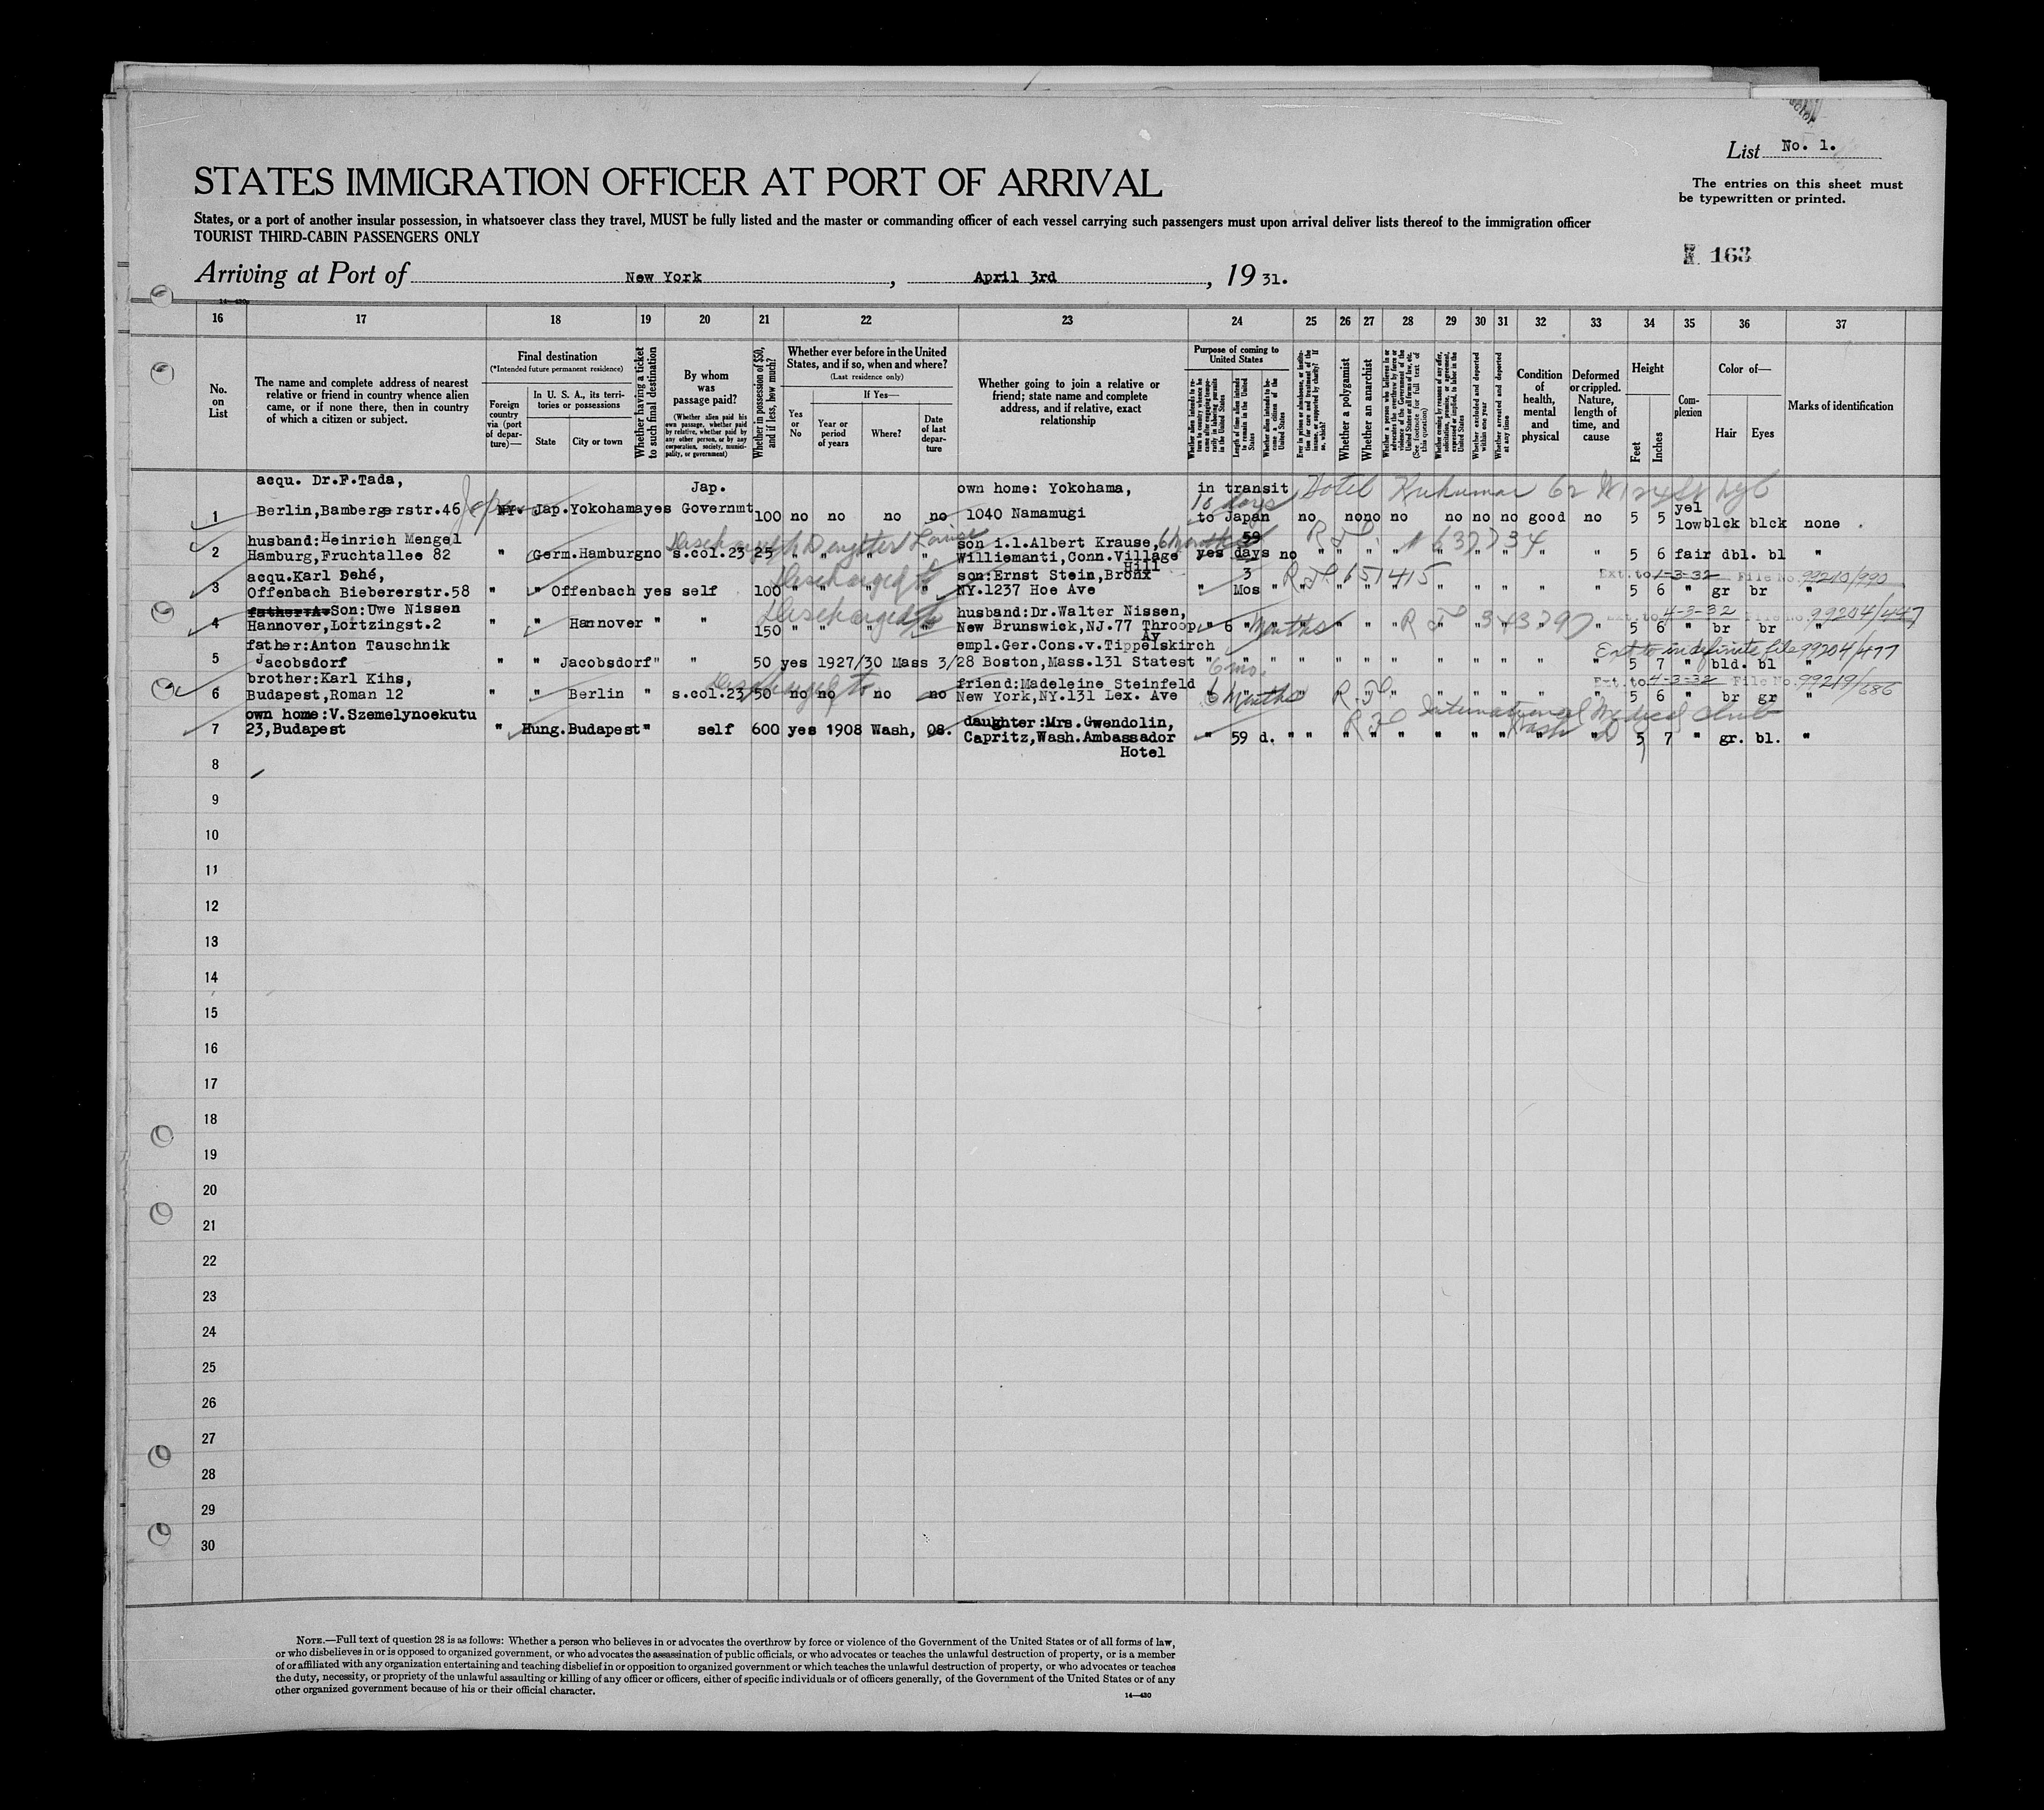 List No. 1.
STATES IMMIGRATION OFFICER AT PORT OF ARRIVAL
The entries on this sheet must
be typewritten or printed.
States, or a port of another insular possession, in whatsoever class they travel, MUST be fully listed and the master or commanding officer of each vessel carrying such passengers must upon arrival deliver lists thereof to the immigration officer
TOURIST THIRD-CABIN PASSENGERS ONLY
163
Arriving at Port of New York, April 3rd, 1931.
14—430
16 17 18 19 20 21 22 23 24 25 26 27 28 29 30 31 32 33 34 35 36 37
No. on List
The name and complete address of nearest
relative or friend in country whence alien
came, or if none there, then in country
of which a citizen or subject.
Final destination
(*Intended future permanent residence)
Foreign country via (port of departure)—
In U. S. A., its territories or possessions
State
City or town
Whether having a ticket to such final destination
By whom was passage paid?
(Whether alien paid his own passage, whether paid by relative, whether paid by any other person, or by any corporation, society, municipality, or government)
Whether in possession of $50, and if less, how much?
Whether ever before in the United States, and if so, when and where?
(Last residence only)
Yes or No
If Yes—
Year or period of years
Where?
Date of last departure
Whether going to join a relative or
friend; state name and complete
address, and if relative, exact
relationship
Purpose of coming to United States
Length of time alien intends to remain in the United States
Whether alien intends to become a citizen of the United States
Whether a polygamist
Whether an anarchist
Whether excluded and deported within one year
Whether arrested and deported at any time
Condition of health, mental and physical
Deformed or crippled. Nature, length of time, and cause
Height
Feet
Inches
Complexion
Color of—
Hair
Eyes
Marks of identification
acqu. Dr.F.Tada, Jap. own home: Yokohama, in transit
1 Berlin,Bambergerstr.46 Japan Jap. Yokohama yes Governmt 100 no no no no 1040 Namamugi to Japan no no no no no no no good no 5 5 yellow blck blck none
husband:Heinrich Mengel son i.l.Albert Krause, 59
2 Hamburg,Fruchtallee 82 " Germ. Hamburg no s.col.23 25 " " " " Williemanti,Conn.Village Hill yes days no " " " " " " " " " 5 6 fair dbl. bl "
acqu.Karl Dehé, son:Ernst Stein,Bronx 3 Ext. to 1-3-32 File No. 99210/990
3 Offenbach Biebererstr.58 " " Offenbach yes self 100 " " " " NY.1237 Hoe Ave " Mos " " " " " " " " " " 5 6 " gr br "
Son:Uwe Nissen husband:Dr.Walter Nissen, Ext. to 4-3-32 File No. 99204/447
4 Hannover,Lortzingst.2 " " Hannover " " 150 " " " " New Brunswick,NJ.77 Throop Av " 6 Months " " " " " " " 5 6 " br br "
father:Anton Tauschnik empl.Ger.Cons.v.Tippelskirch Ext to indefinite file 99204/477
5 Jacobsdorf " " Jacobsdorf " " 50 yes 1927/30 Mass 3/28 Boston,Mass.131 Statest " 6 mo. " " " " " " " " " 5 7 " bld. bl "
brother:Karl Kihs, friend:Madeleine Steinfeld Ext. to 4-3-32 File No. 99219/686
6 Budapest,Roman 12 " " Berlin " s.col.23 50 no no no no New York,NY.131 Lex. Ave 6 Months " " " " " " " 5 6 " br gr "
own home:V.Szemelynoekutu daughter:Mrs.Gwendolin, International Medical Club
7 23,Budapest " Hung. Budapest " self 600 yes 1908 Wash, 08. Capritz,Wash.Ambassador Hotel " 59 d. " " " " " " " " " 5 7 " gr. bl. "
8
9
10
11
12
13
14
15
16
17
18
19
20
21
22
23
24
25
26
27
28
29
30
NOTE.—Full text of question 28 is as follows: Whether a person who believes in or advocates the overthrow by force or violence of the Government of the United States or of all forms of law,
or who disbelieves in or is opposed to organized government, or who advocates the assassination of public officials, or who advocates or teaches the unlawful destruction of property, or is a member
of or affiliated with any organization entertaining and teaching disbelief in or opposition to organized government or which teaches the unlawful destruction of property, or who advocates or teaches
the duty, necessity, or propriety of the unlawful assaulting or killing of any officer or officers, either of specific individuals or of officers generally, of the Government of the United States or of any
other organized government because of his or their official character.
14—430